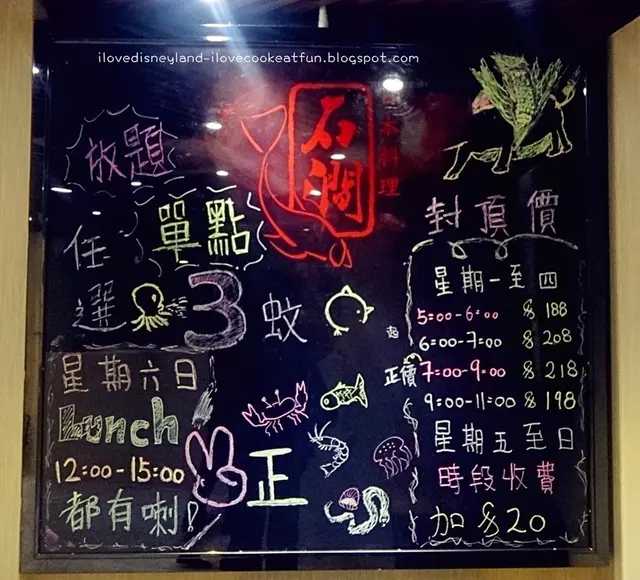 ilovedisneyland-ilovecookeatfun.blogspot.com
石澗
日本料理
放題
單點
任選 3 蚊
起
星期六日
Lunch
12:00-15:00
都有喇!
正
封頂價
星期一至四
5:00-6:00 $188
6:00-7:00 $208
正價 7:00-9:00 $218
9:00-11:00 $198
星期五至日
時段收費
加 $20